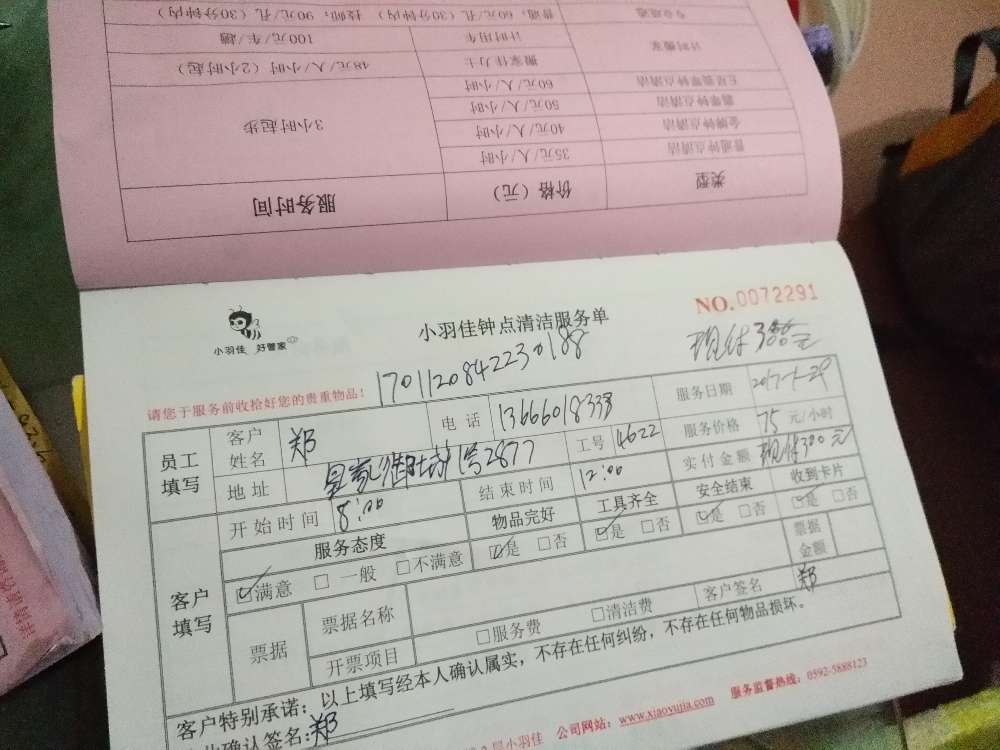 专业疏通 普通：60元/孔（30分钟内） 技师：90元/孔（30分钟内）
计时搬家 计时用车 100元/车/趟
搬家佳力士 48元/人/小时（2小时起）
五星翡翠钟点清洁 60元/人/小时
翡翠钟点清洁 50元/人/小时
金牌钟点清洁 40元/人/小时
普通钟点清洁 35元/人/小时
3小时起步
类型 价格（元） 服务时间
小羽佳 好管家
小羽佳钟点清洁服务单
NO.0072291
现付300元
请您于服务前收拾好您的贵重物品！
1701120842230188
员工填写
客户姓名 郑 电话 13666018338 服务日期 2017-1-29
地址 1号2877 工号 4622 服务价格 75 元/小时
开始时间 8:00 结束时间 12:00 实付金额 现付300元
客户填写
服务态度 物品完好 工具齐全 安全结束 收到卡片
☑满意 □一般 □不满意 ☑是 □否 ☑是 □否 ☑是 □否 ☑是 □否
票据 票据名称 票据金额
开票项目 □服务费 □清洁费 客户签名 郑
客户特别承诺：以上填写经本人确认属实，不存在任何纠纷，不存在任何物品损坏。
确认签名:郑
小羽佳 公司网站：www.xiaoyujia.com 服务监督热线：0592-5888123